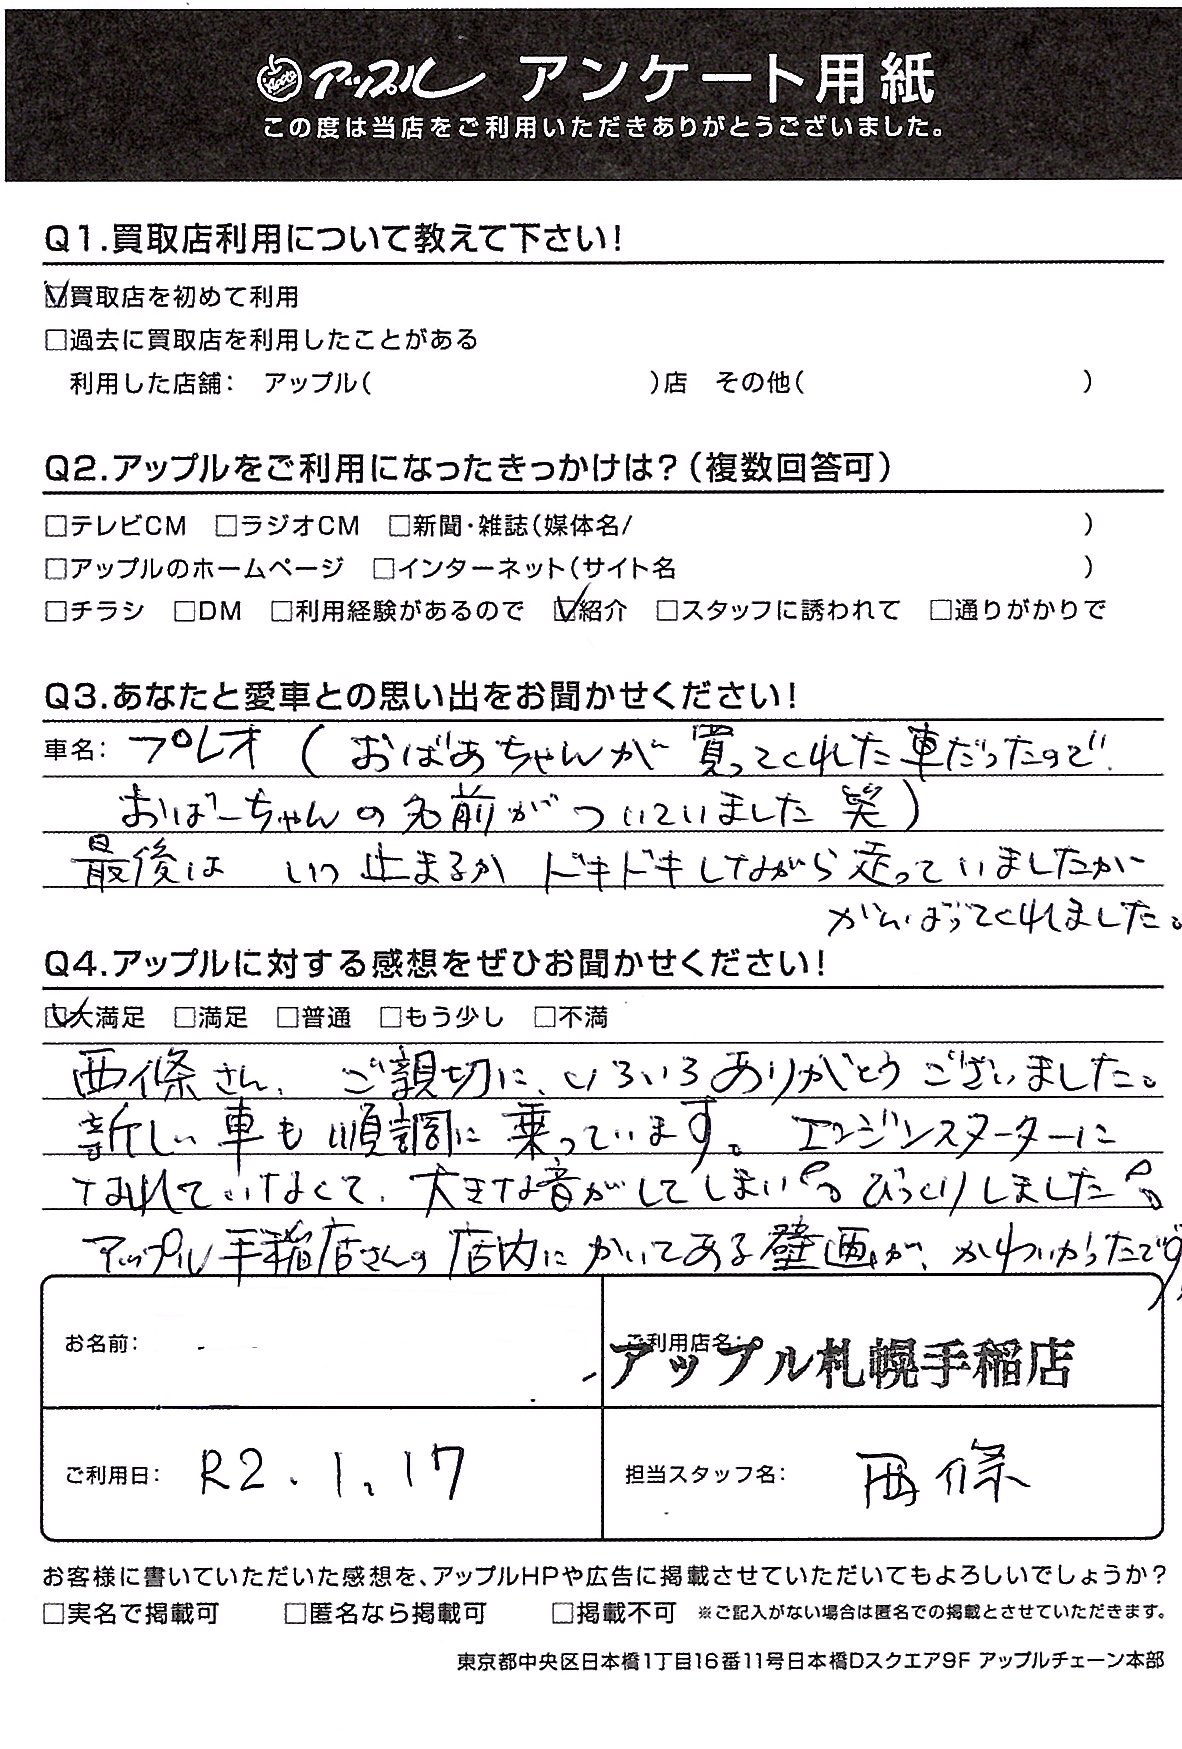 Apple アップル アンケート用紙
この度は当店をご利用いただきありがとうございました。
Q1.買取店利用について教えて下さい!
☑買取店を初めて利用
□過去に買取店を利用したことがある
利用した店舗: アップル( )店 その他( )
Q2.アップルをご利用になったきっかけは?(複数回答可)
□テレビCM □ラジオCM □新聞・雑誌(媒体名/ )
□アップルのホームページ □インターネット(サイト名 )
□チラシ □DM □利用経験があるので ☑紹介 □スタッフに誘われて □通りがかりで
Q3.あなたと愛車との思い出をお聞かせください!
車名: プレオ (おばあちゃんが買ってくれた車だったので
おばーちゃんの名前がついていました 笑)
最後は いつ止まるか ドキドキしながら走っていましたが
がんばってくれました。
Q4.アップルに対する感想をぜひお聞かせください!
☑大満足 □満足 □普通 □もう少し □不満
西條さん、ご親切に、いろいろありがとうございました。
新しい車も順調に乗っています。エンジンスターターに
なれていなくて、大きな音がしてしまい びっくりしました
アップル手稲店さんの店内にかいてある壁画が、かわいかったです
お名前:
ご利用店名:
アップル札幌手稲店
ご利用日: R2.1.17
担当スタッフ名: 西條
お客様に書いていただいた感想を、アップルHPや広告に掲載させていただいてもよろしいでしょうか?
□実名で掲載可 □匿名なら掲載可 □掲載不可 ※ご記入がない場合は匿名での掲載とさせていただきます。
東京都中央区日本橋1丁目16番11号日本橋Dスクエア9F アップルチェーン本部